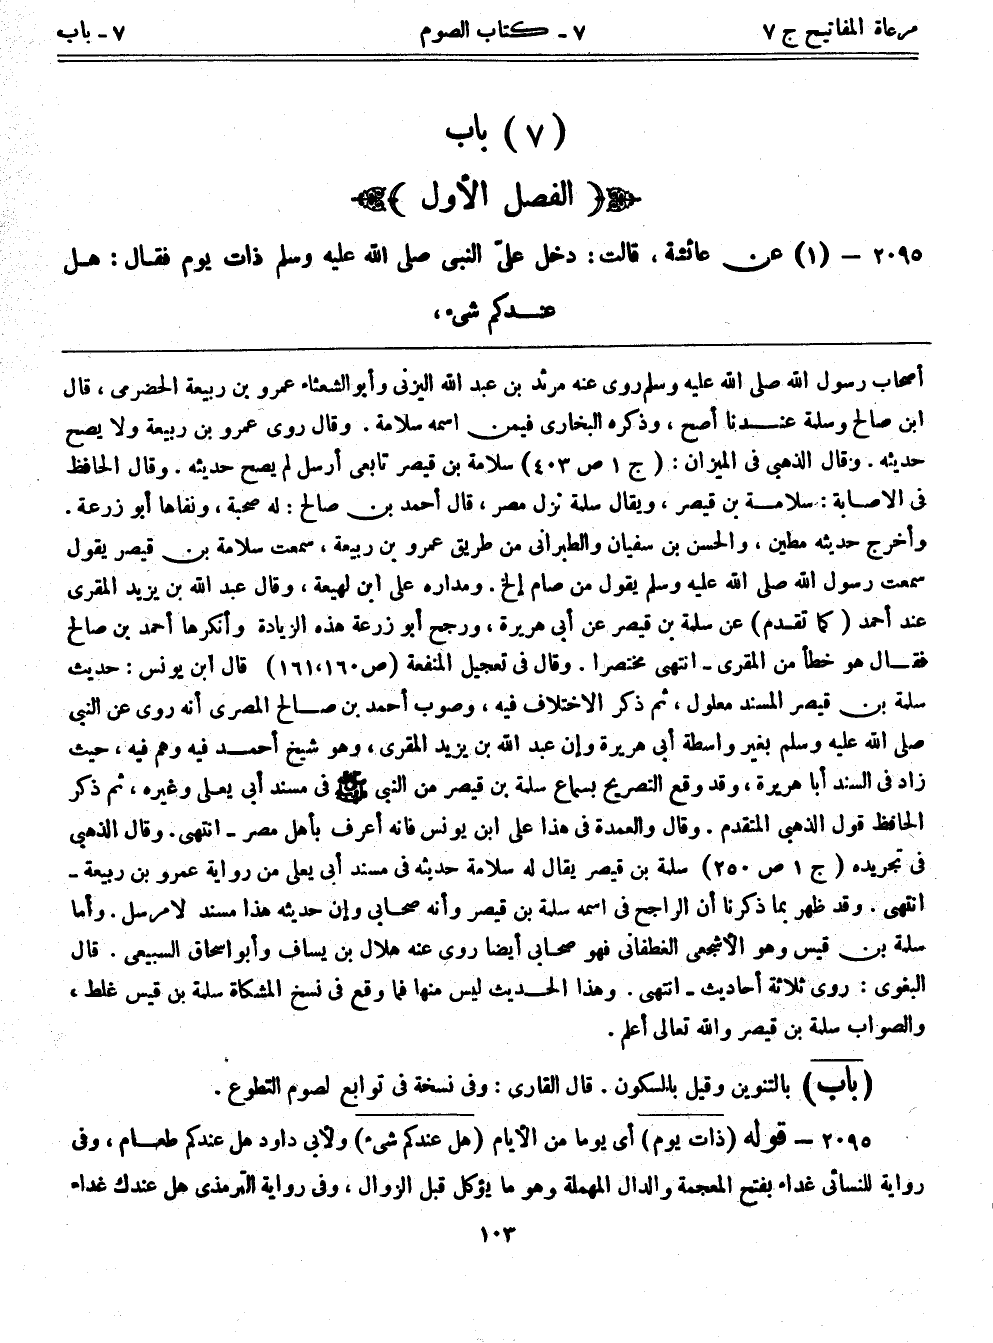 مرعاة المفاتيح ج ٧ ٧ - كتاب الصوم ٧ - باب
(٧) باب
﴿ الفصل الأول ﴾
٢٠٩٥ – (١) عن عائشة ، قالت : دخل علىّ النبى صلى الله عليه وسلم ذات يوم فقال : هل
عندكم شىء ،
أصحاب رسول الله صلى الله عليه وسلم روى عنه مرثد بن عبد الله اليزنى وأبو الشعثاء عمرو بن ربيعة الحضرمى ، قال
ابن صالح وسلمة عندنا أصح ، وذكره البخارى فيمن اسمه سلامة . وقال روى عمرو بن ربيعة ولا يصح
حديثه . وقال الذهبى فى الميزان : ( ج ١ ص ٤٠٣) سلامة بن قيصر تابعى أرسل لم يصح حديثه . وقال الحافظ
فى الاصابة : سلامة بن قيصر ، ويقال سلمة نزل مصر ، قال أحمد بن صالح : له صحبة ، ونفاها أبو زرعة .
وأخرج حديثه مطين ، والحسن بن سفيان والطبرانى من طريق عمرو بن ربيعة ، سمعت سلامة بن قيصر يقول
سمعت رسول الله صلى الله عليه وسلم يقول من صام إلخ . ومداره على ابن لهيعة ، وقال عبد الله بن يزيد المقرى
عند أحمد ( كما تقدم ) عن سلمة بن قيصر عن أبى هريرة ، ورجح أبو زرعة هذه الزيادة وأنكرها أحمد بن صالح
فقال هو خطأ من المقرى - انتهى مختصرا . وقال فى تعجيل المنفعة (ص١٦٠،١٦١) قال ابن يونس : حديث
سلمة بن قيصر المسند معلول ، ثم ذكر الاختلاف فيه ، وصوب أحمد بن صالح المصرى أنه روى عن النبي
صلى الله عليه وسلم بغير واسطة أبى هريرة وإن عبد الله بن يزيد المقرى ، وهو شيخ أحمد فيه وهم فيه ، حيث
زاد فى السند أبا هريرة ، وقد وقع التصريح بسماع سلمة بن قيصر من النبى ﷺ فى مسند أبى يعلى وغيره ، ثم ذكر
الحافظ قول الذهبى المتقدم . وقال والعمدة فى هذا على ابن يونس فانه أعرف بأهل مصر - انتهى . وقال الذهبى
فى تجريده ( ج ١ ص ٢٥٠) سلمة بن قيصر يقال له سلامة حديثه فى مسند أبى يعلى من رواية عمرو بن ربيعة -
انتهى . وقد ظهر بما ذكرنا أن الراجح فى اسمه سلمة بن قيصر وأنه صحابى وإن حديثه هذا مسند لا مرسل . وأما
سلمة بن قيس وهو الأشجعى الغطفانى فهو صحابى أيضا روى عنه هلال بن يساف وأبو اسحاق السبيعى . قال
البغوى : روى ثلاثة أحاديث - انتهى . وهذا الحديث ليس منها فما وقع فى نسخ المشكاة سلمة بن قيس غلط ،
والصواب سلمة بن قيصر والله تعالى أعلم .
(باب) بالتنوين وقيل بالسكون . قال القارى : وفى نسخة فى توابع لصوم التطوع .
٢٠٩٥ – قوله (ذات يوم) أى يوما من الأيام (هل عندكم شىء) ولأبى داود هل عندكم طعام ، وفى
رواية للنسائى غداء بفتح المعجمة والدال المهملة وهو ما يؤكل قبل الزوال ، وفى رواية الترمذى هل عندك غداء
١٠٣